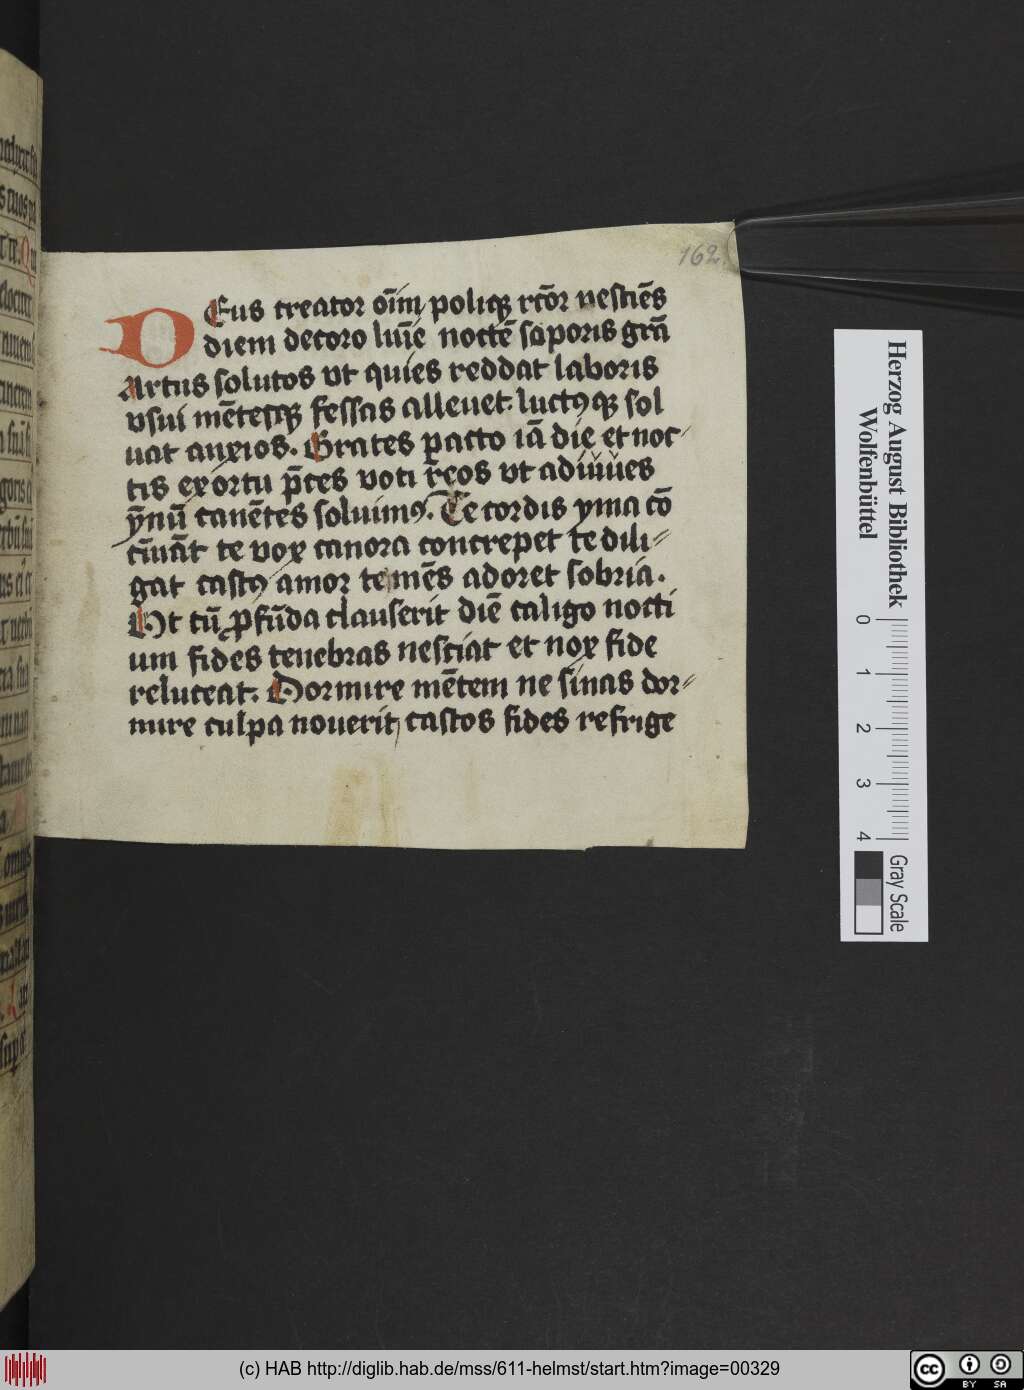 162
DEus creator oīm poliq; rcōr vestiēs
diem decoro lūie noctē soporis grā
Artus solutos vt quies reddat laboris
vsui mētesq; fessas alleuet. luctꝰq; sol
uat anxios. Grates pacto iā die et noc
tis exortu p̄ces voti r̄eos vt adiuues
ȳnū canētes soluimꝰ. Te cordis yma cō
cīnāt te vox canora concrepet te dili⸗
gat castꝰ amor te mēs adoret sobria.
Vt cū ꝓfūda clauserit diē caligo nocti
um fides tenebras nesciat et nox fide
reluceat. Dormire mētem ne sinas dor⸗
mire culpa nouerit castos fides refrige
Herzog August Bibliothek
Wolfenbüttel
0 1 2 3 4
Gray Scale
(c) HAB http://diglib.hab.de/mss/611-helmst/start.htm?image=00329
cc BY SA